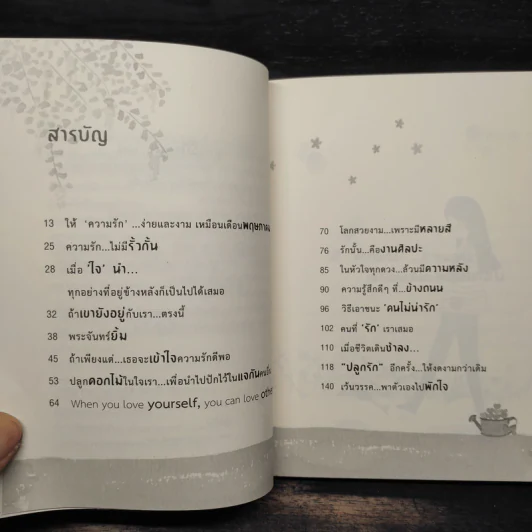 สารบัญ
13 ให้ 'ความรัก'...ง่ายและงาม เหมือนเดือนพฤษภาคม
25 ความรัก...ไม่มีรั้วกั้น
28 เมื่อ 'ใจ' นำ...
ทุกอย่างที่อยู่ข้างหลังก็เป็นไปได้เสมอ
32 ถ้าเขายังอยู่กับเรา...ตรงนี้
38 พระจันทร์ยิ้ม
45 ถ้าเพียงแต่...เธอจะเข้าใจความรักดีพอ
53 ปลูกดอกไม้ในใจเรา...เพื่อนำไปปักไว้ในแจกัน
64 When you love yourself, you can love
70 โลกสวยงาม...เพราะมีหลายสี
76 รักนั้น...คืองานศิลปะ
85 ในหัวใจทุกดวง...ล้วนมีความหลัง
90 ความรู้สึกดีๆ ที่...ข้างถนน
96 วิธีเอาชนะ 'คนไม่น่ารัก'
102 คนที่ 'รัก' เราเสมอ
110 เมื่อชีวิตเดินช้าลง...
118 "ปลูกรัก" อีกครั้ง...ให้งดงามกว่าเดิม
140 เว้นวรรค...พาตัวเองไปพักใจ